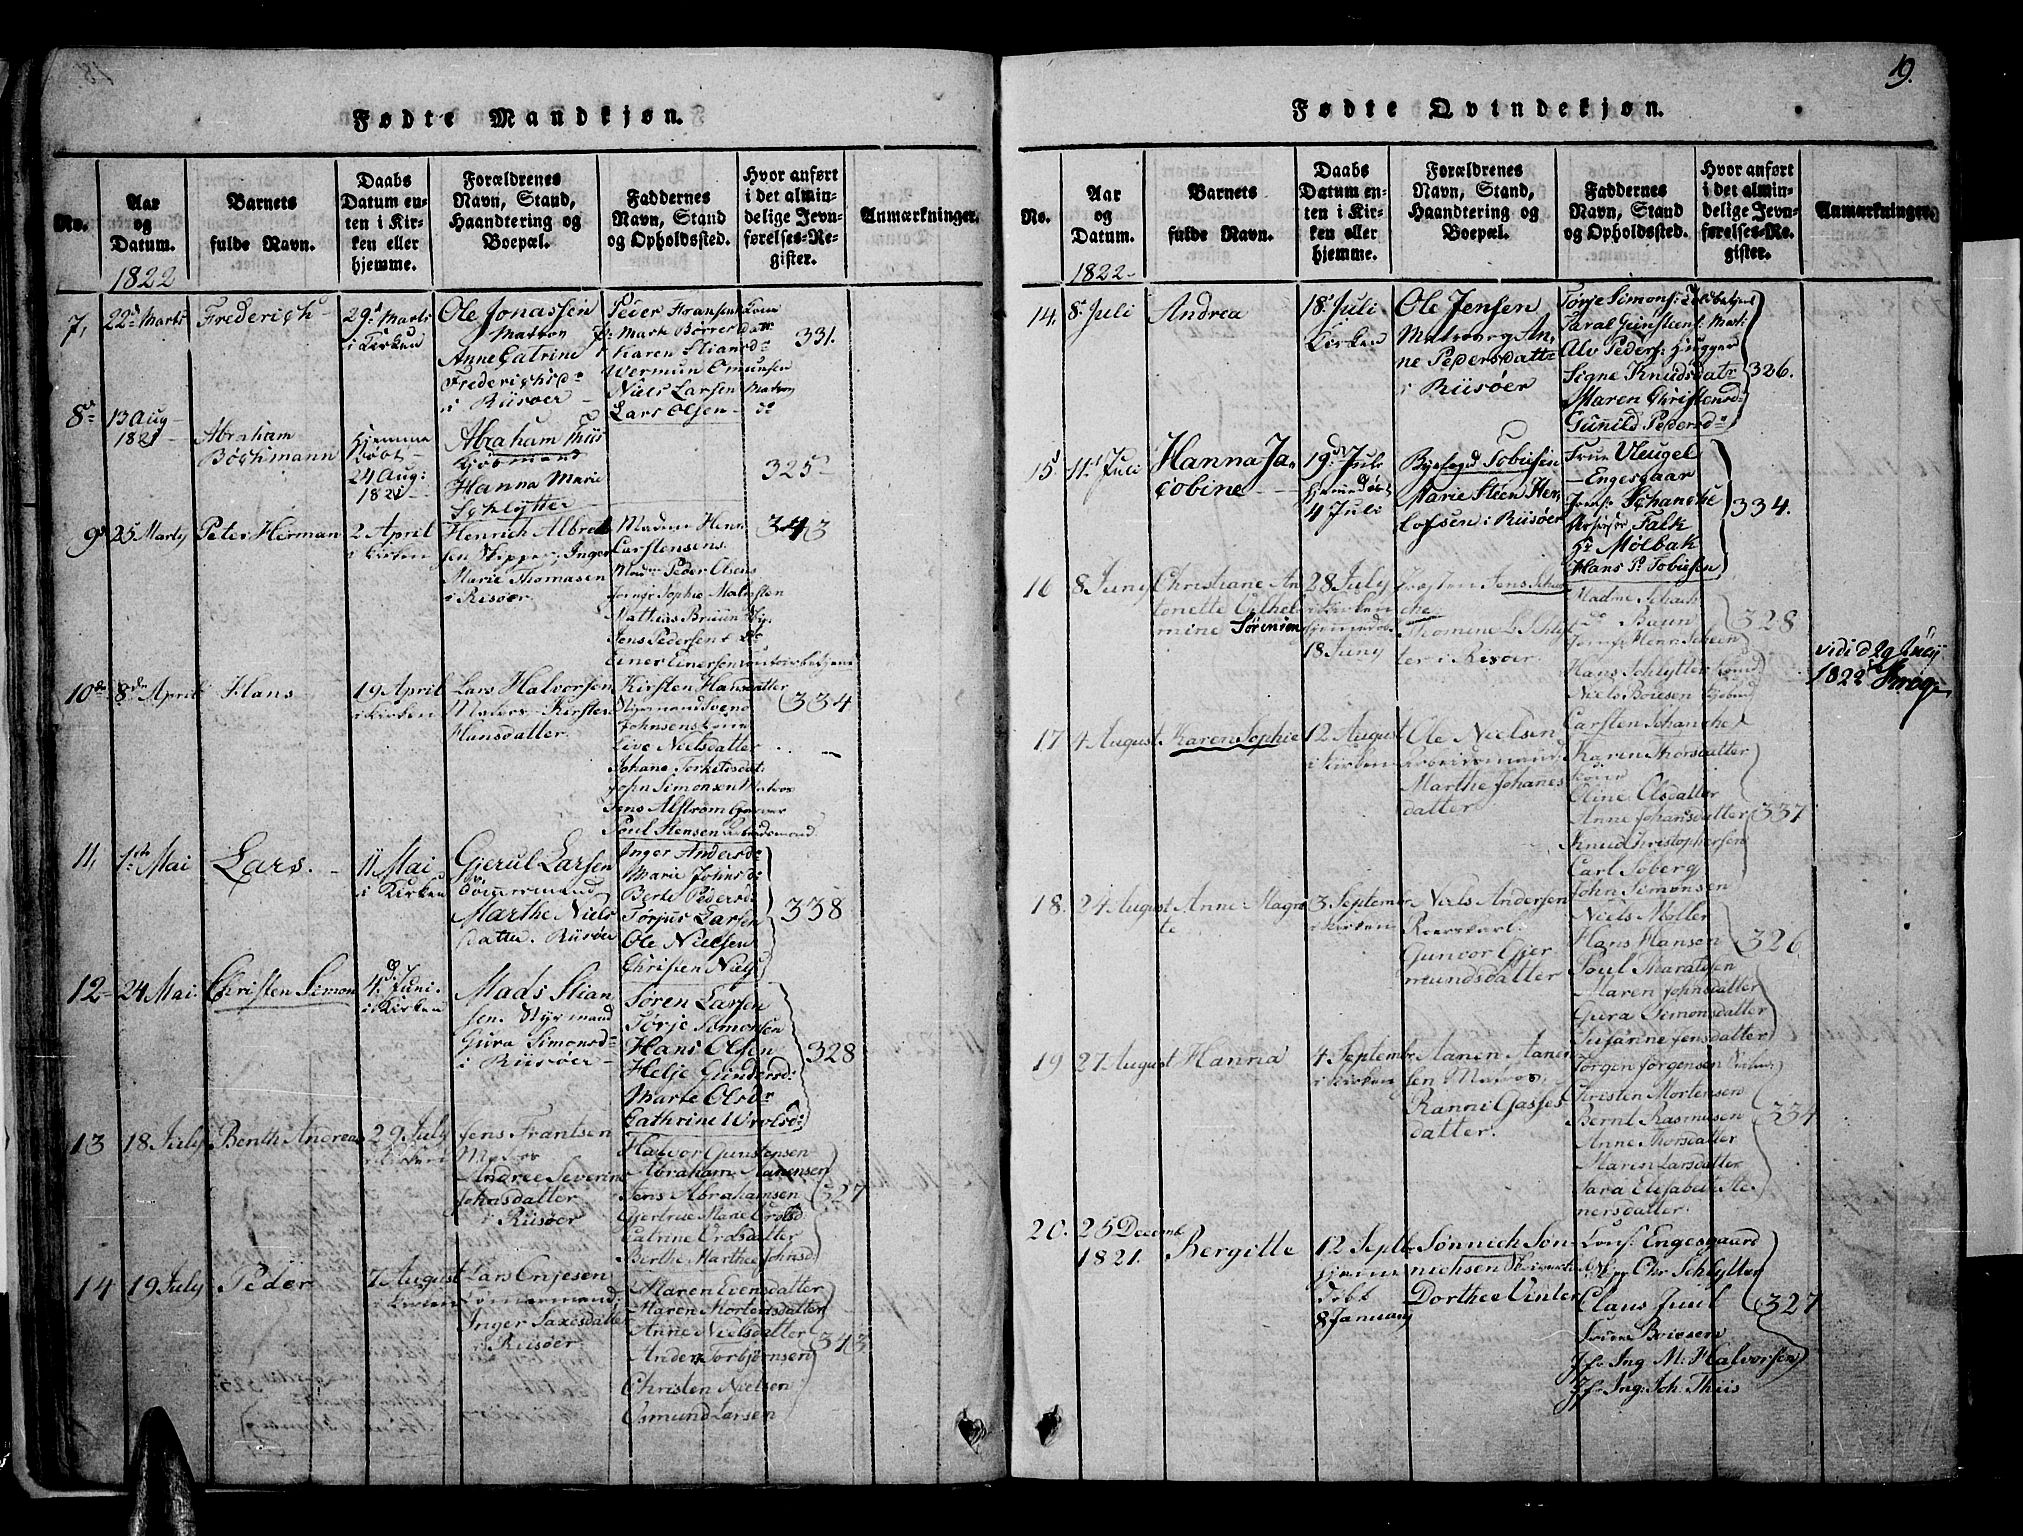 19.
Fødte Mandkjøn.
No.
Aar
og
Datum.
1822
Barnets
fulde Navn.
Daabs
Datum en-
ten i Kir-
ken eller
hjemme.
Forældrenes
Navn, Stand,
Haandtering og
Boepæl.
Faddernes
Navn, Stand
og Opholdssted.
Hvor anført
i det almin-
delige Jevn-
førelses-Re-
gister.
Anmærkninger.
7,
22d Marts
Frederich
29d Marts
i Kirken
Ole Jonassen
Matros
Anne Catrine
Frederichsdr
i Riisøer
Peder Fransens Kone
Karen Stiansdr
Wermun Omunsen
Niels Larsen Matros
Lars Olsen do
331.
8d
13 Aug
1821
Abraham
Bochmann
Hjemme
døbt
24 Aug:
1821
Abraham
Kjøbmand
Hanna Marie
Schlytter
325
9d
25 Marts
Peter Herman
2 April
i Kirken
Henrich Albret
sen Skipper, Inger
Marie Thomasen
i Risøer
Madme Hens
Carstensens
Madme Peder Olsens
Jomfr Sophie Malmsten
Mathias Bruun
Jens Pedersen do
Einer Einersen
343
10de
8de April
Hans
19 April
i Kirken
Lars Halvorsen
Matros Kirsten
Hansdatter.
Kirsten Hansdatter
Styrmand Svend
Johnsens kone
Live Nielsdatter
Johane Terkelsdat:
John Simonsen Matros
Jens Alstrøm Garver
Poul Stensen Arbeidsmand.
334
11,
1ste Mai
Lars.
11 Mai
i Kirken
Gjerul Larsen
Tømmermand
Marthe Niels
datter. Riisøer
Inger Andersdr
Marie Johnsd:
Berte Pedersd
Torjus Larsen
Ole Nielsen
Christen Niels
338
12
24 Mai.
Christen Simon
4d. Juni.
i Kirken
Mads Stian
sen. Styrmand
Gura Simonsdr
i Riisøer
Søren Larsen
Törje Simonsen
Hans Olsen
Helje Gundersd:
Marte Olsdr
Cathrine Wrolsd:
328
13
18 July
Benth Andreas
29 July
i Kirken
Jens Frantsen
Matros
Andree Severine
Johnsdatter
i Riisøer
Halvor Gunstensen
Abraham Aanensen
Jens Abrahamsen
Gjertrue Marie Wrolsd
Catrine Wrolsdatter
Berthe Marthe Johnsd:
327
14
19 July
Peder
7 August
i Kirken
Lars Onjesen
Tømmermand
Inger Saxesdatter
i Riisøer
Maren Evensdatter
Maren Mortensdatter
Anne Nielsdatter
Anders Torbjørnsen
Christen Nielsen
Osmund Larsen
343
Fødte Qvindekjøn.
No.
Aar
og
Datum.
1822
Barnets
fulde Navn.
Daabs
Datum en-
ten i Kir-
ken eller
hjemme.
Forældrenes
Navn, Stand,
Haandtering og
Boepæl.
Faddernes
Navn, Stand
og Opholdssted.
Hvor anført
i det almin-
delige Jevn-
førelses-Re-
gister.
Anmærkninger.
14.
8d Juli
Andrea
18d Juli
Kirken
Ole Jensen
Matros og An
ne Pedersdattr
i Riisøer
Törje Simons: Toldbetjent
Taral Gunstens: Mat:
Alv Peders: Hugger
Signe Knudsdatr
Maren Christensd
Gunild Pedersdr
326.
15d
11d Juli
Hanna Ja
cobine
19d Juli
Hjemmedøbt
4 Juli
Byefogd Tobiesen
Marie Steen Her
lofsen i Riisøer
Frue Ueugel
Engesgaar
Jomf: Schanche
Assesør Falk
Hr Mølbak
Hans P. Tobiesen
334.
16
8 Juny
Christiane An
tonette Vilhel
mine Sørenien
28 July
i Kirken
Hjemmedøbt
18 Juny
Provsten Jens Schan
che
Thomine L. Schlyt
ter i Risøer
Madme Schach
Do Baun
Jomfr Henr. Steen
Hans Schlytter
Niels Boiesen
Carsten Schanche
328
vidi d 29 July
1822
17
4 August.
Karen Sophie
12 August
i Kirken
Ole Nielsen
Arbeidsmand
Marthe Johanes
datter
Karen Thorsdatter
kone
Oline Olsdatter
Anne Johansdatter
Knud Christophersen
Carl Soberg
John Simonsen
337
18.
24 August
Anne Magre
te
3 Septembr
i Kirken
Niels Andersen
Roerskarl
Gunvor Gjer
mundsdatter
Niels Møller
Hans Hansen
Poul Tharalsen
Maren Johnsdatter
Gura Simonsdatter
Susanne Jensdatter
326
19
27 August
Hanna
4 Septembr
i Kirken
Aanen Aanen
sen Matros,
Ranni Gasses
datter.
Jörgen Jörgensen
Christen Mortensen
Bernt Rasmusen
Anne Thorsdatter
Maren Larsdatter
Sara Elisabet Ste
nersdatter
334
20.
25 Decemb
1821.
Bergitte
12 Septbr
Hjemme
døbt
8 January
Sønnich Søn
nichsen
Dorthea Vinter
Cons: Engesgaard
Chr Schlytter
Claus Juul
Boiesen
Jfr Ing M: Halvorsen
Jfr Ing: Joh: Thiis
327